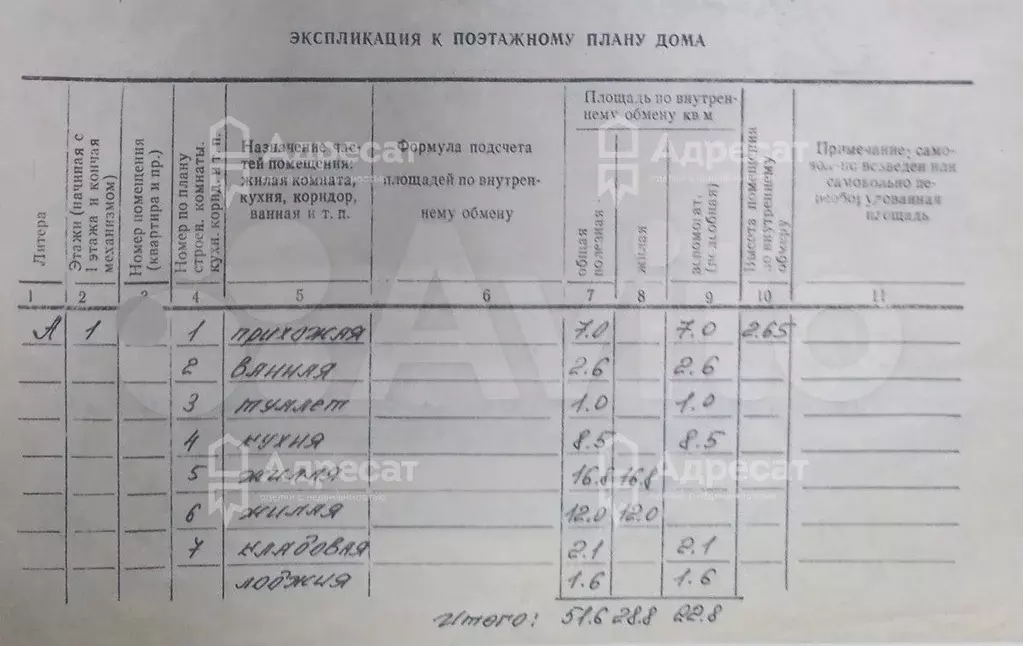 ЭКСПЛИКАЦИЯ К ПОЭТАЖНОМУ ПЛАНУ ДОМА
Литера
Этажи (начиная с
1 этажа и кончая
механизмом)
Номер помещения
(квартира и пр.)
Номер по плану
строен. комнаты.
кухн. корид. и т. п.
Назначение час-
тей помещения:
жилая комната,
кухня, коридор,
ванная и т. п.
Формула подсчета
площадей по внутрен-
нему обмену
Площадь по внутрен-
нему обмену кв м
общая
полезная
жилая
вспомогат.
(подсобная)
Высота помещения
по внутреннему
обмеру
Примечание: само-
возведен или
самовольно пе-
реоборудованная
площадь
1 2 3 4 5 6 7 8 9 10 11
А 1 1 прихожая 7.0 7.0 2.65
2 ванная 2.6 2.6
3 туалет 1.0 1.0
4 кухня 8.5 8.5
5 жилая 16.8 16.8
6 жилая 12.0 12.0
7 кладовая 2.1 2.1
лоджия 1.6 1.6
Итого: 51.6 28.8 22.8
Адресат
сделки с недвижимостью
Адресат
сделки с недвижимостью
Адресат
сделки с недвижимостью
Адресат
сделки с недвижимостью
Avito